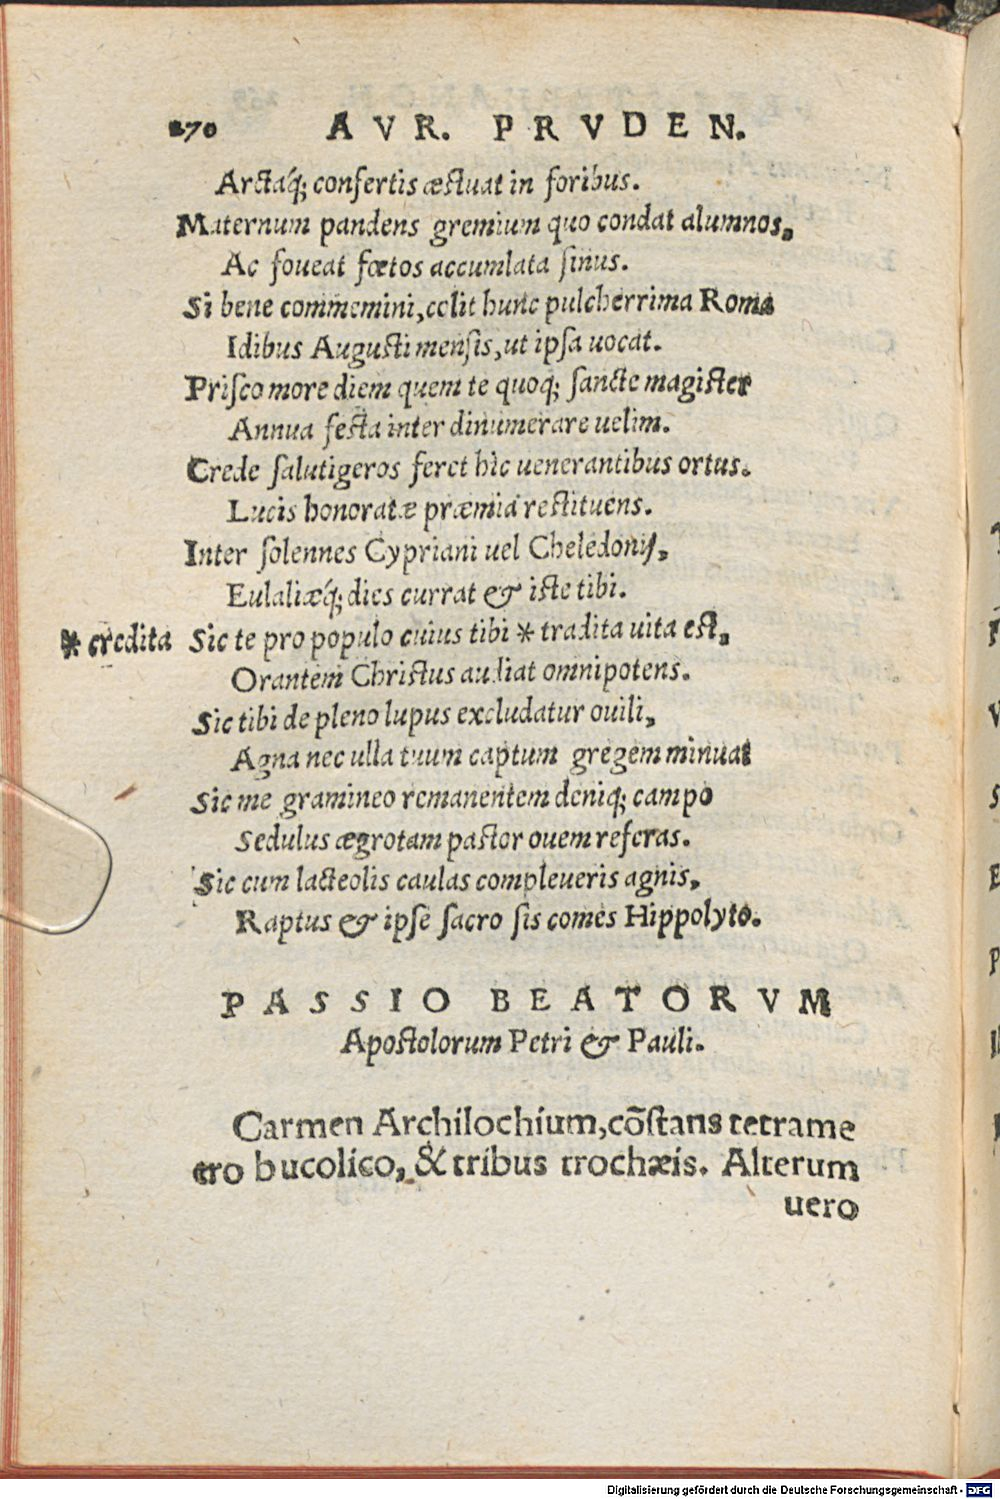 270 AVR. PRVDEN.
Arctaq́; confertis æstuat in foribus.
Maternum pandens gremium quo condat alumnos,
Ac foueat fœtos accumlata sinus.
Si bene commemini, colit hunc pulcherrima Roma
Idibus Augusti mensis, ut ipsa uocat.
Prisco more diem quem te quoq; sancte magister
Annua festa inter dinumerare uelim.
Crede salutigeros feret hìc uenerantibus ortus.
Lucis honoratæ præmia restituens.
Inter solennes Cypriani uel Cheledonij,
Eulaliæq́; dies currat & iste tibi.
* credita Sic te pro populo cuius tibi * tradita uita est,
Orantem Christus audiat omnipotens.
Sic tibi de pleno lupus excludatur ouili,
Agna nec ulla tuum captum gregem minuat
Sic me gramineo remanentem deniq; campo
Sedulus ægrotam pastor ouem referas.
Sic cum lacteolis caulas compleueris agnis,
Raptus & ipse sacro sis comes Hippolyto.
PASSIO BEATORVM
Apostolorum Petri & Pauli.
Carmen Archilochium, cōstans tetrame
tro bucolico, & tribus trochæis. Alterum
uero
Digitalisierung gefördert durch die Deutsche Forschungsgemeinschaft - DFG